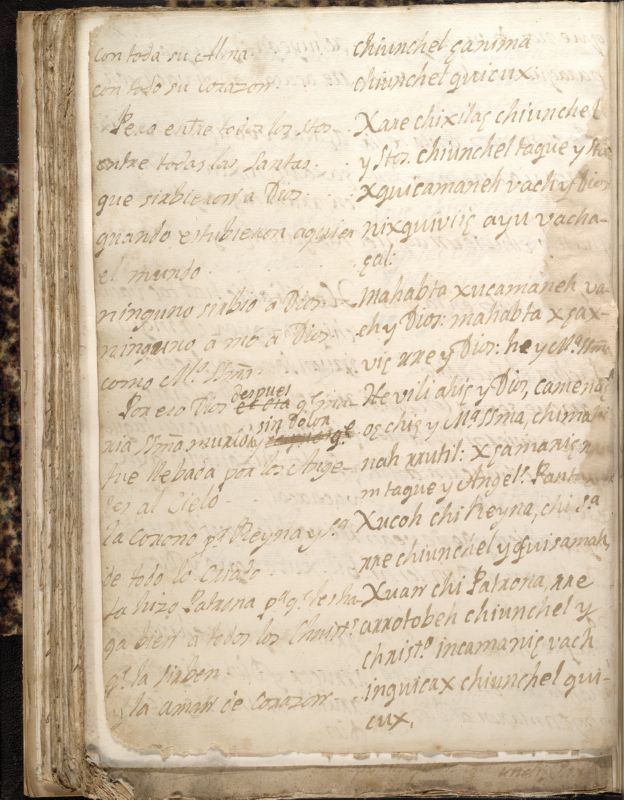 con toda su Alma.
con todo su Corazon.
Pero entre todos los Stos.
entre todas las Santas.
que sirbieron a Dios.
quando estubieron aqui en
el mundo.
ninguno sirbio a Dios
ninguno amo a Dios
como Mª. Ssmª.
Por eso Dios despues
ria Ssmª murió sin dolor
fue llebada por los Ange-
les al Cielo.
la Coronó pª Reyna y Sª
de todo lo Criado.
la hizo Patrona pª qª les ha-
ga bien a todos los Christˢ
qª la sirben
y la aman de corazon
chiunchel çanima
chiunchel quicux.
Xare chixilaç chiunchel
y Stos. chiunchel taque y Sta
xquicamaneh vach y Dios
nixquiviiç ayu vacha-
çal:
Mahabta xucamaneh va-
ch y Dios: mahabta xçax-
viç rre y Dios: he y Mª Ssma
He vili ahiç y Dios, camenaç
oç chiç y Mª Ssma, chima
nah rrutil: xçamaniç
m taque y Angelˢ.
Xucoh chi Reyna, chi Sª
rre chiunchel y quisamah,
Xuan chi Patrona, rre
arrotobeh chiunchel y
christº incamaniç vach
inquicax chiunchel qui-
cux,